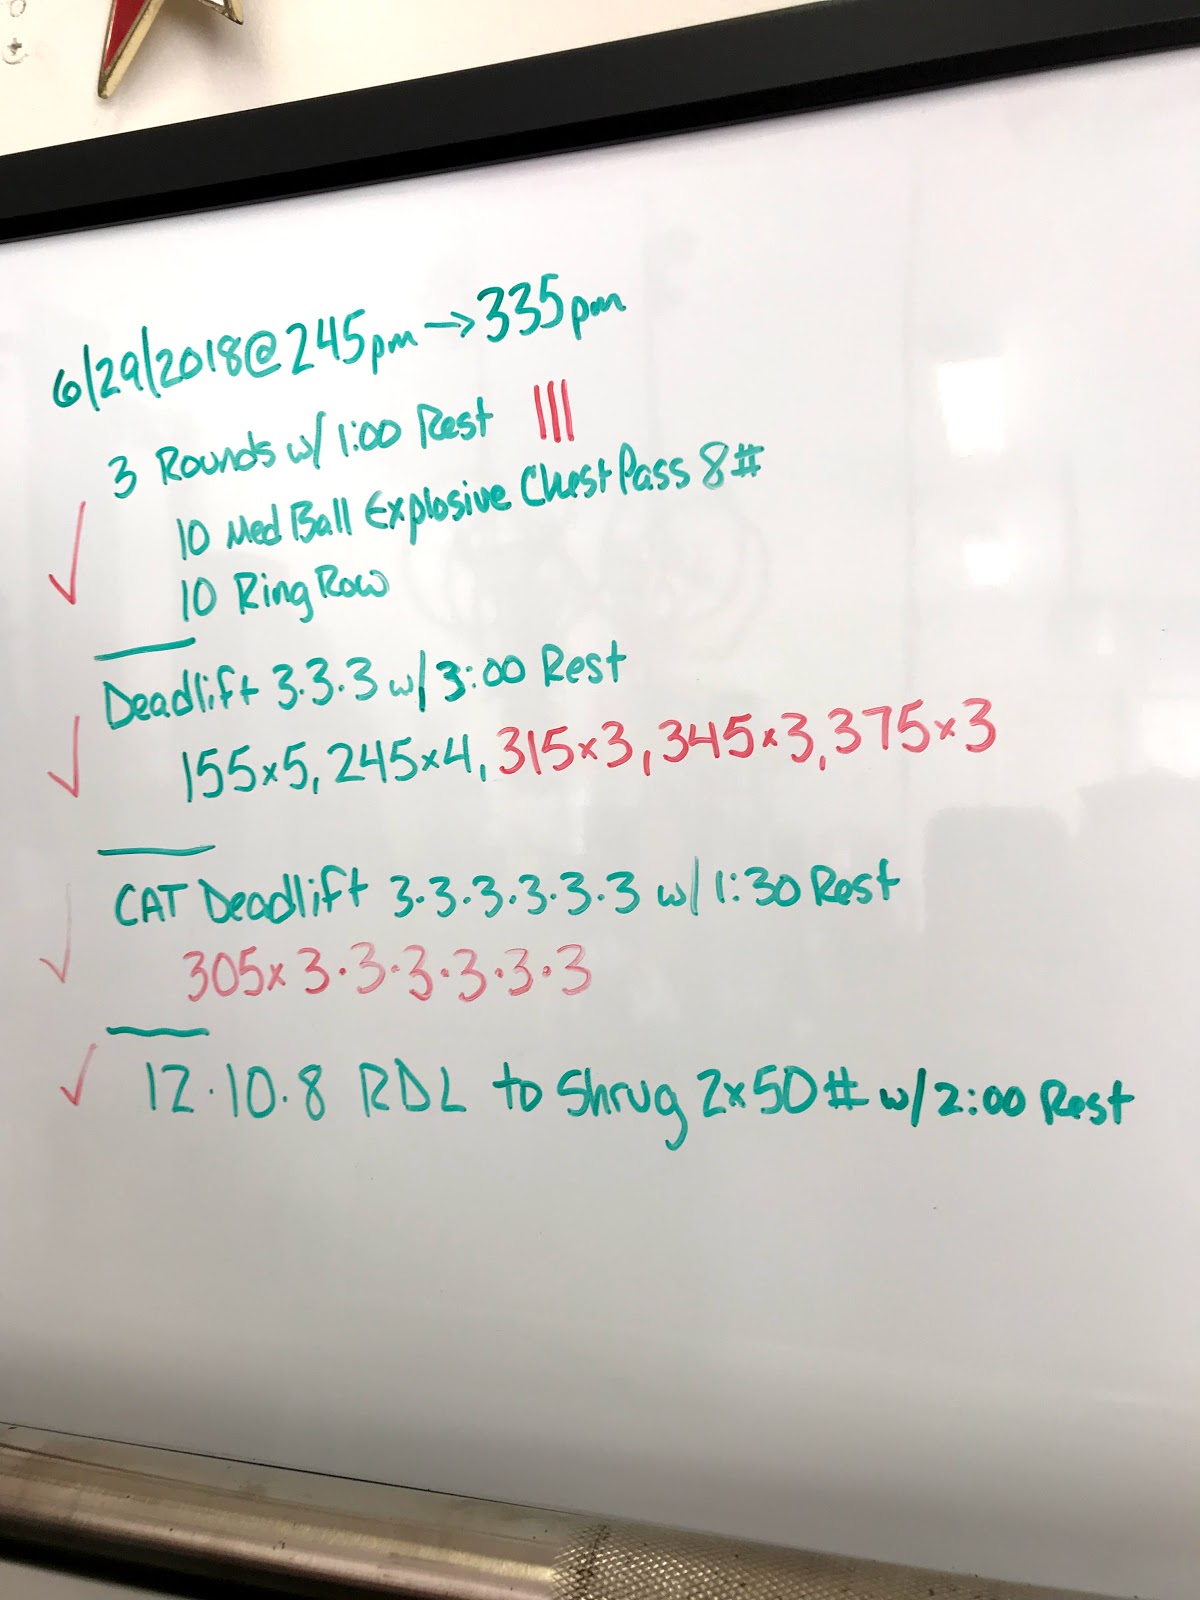 6/29/2018@245pm→335pm
3 Rounds w/ 1:00 Rest |||
10 Med Ball Explosive Chest Pass 8#
10 Ring Row
Deadlift 3.3.3 w/ 3:00 Rest
155x5, 245x4, 315x3, 345x3, 375x3
CAT Deadlift 3.3.3.3.3.3 w/ 1:30 Rest
305x 3.3.3.3.3.3
12.10.8 RDL to Shrug 2x50# w/2:00 Rest